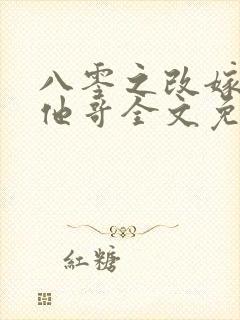 八零之改嫁
他哥全文免
红糖